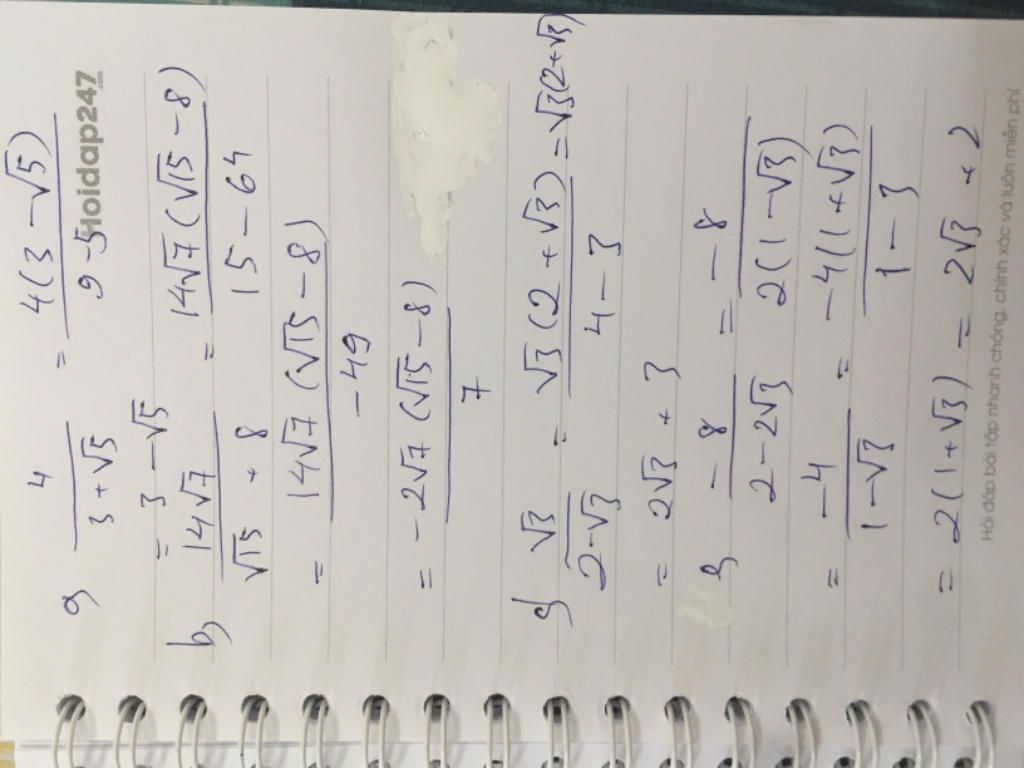 Hoidap247
.com
a) 4/(3+√5) = 4(3-√5)/(9-5)
= 3-√5
b) 14√7/(√15+8) = 14√7(√15-8)/(15-64)
= 14√7(√15-8)/(-49)
= -2√7(√15-8)/7
c) √3/(2-√3) = √3(2+√3)/(4-3) = √3(2+√3)
= 2√3+3
-8/(2-2√3) = -8/(2(1-√3))
= -4/(1-√3) = -4(1+√3)/(1-3)
= 2(1+√3) = 2√3+2
Hỏi đáp bài tập nhanh chóng, chính xác và luôn miễn phí